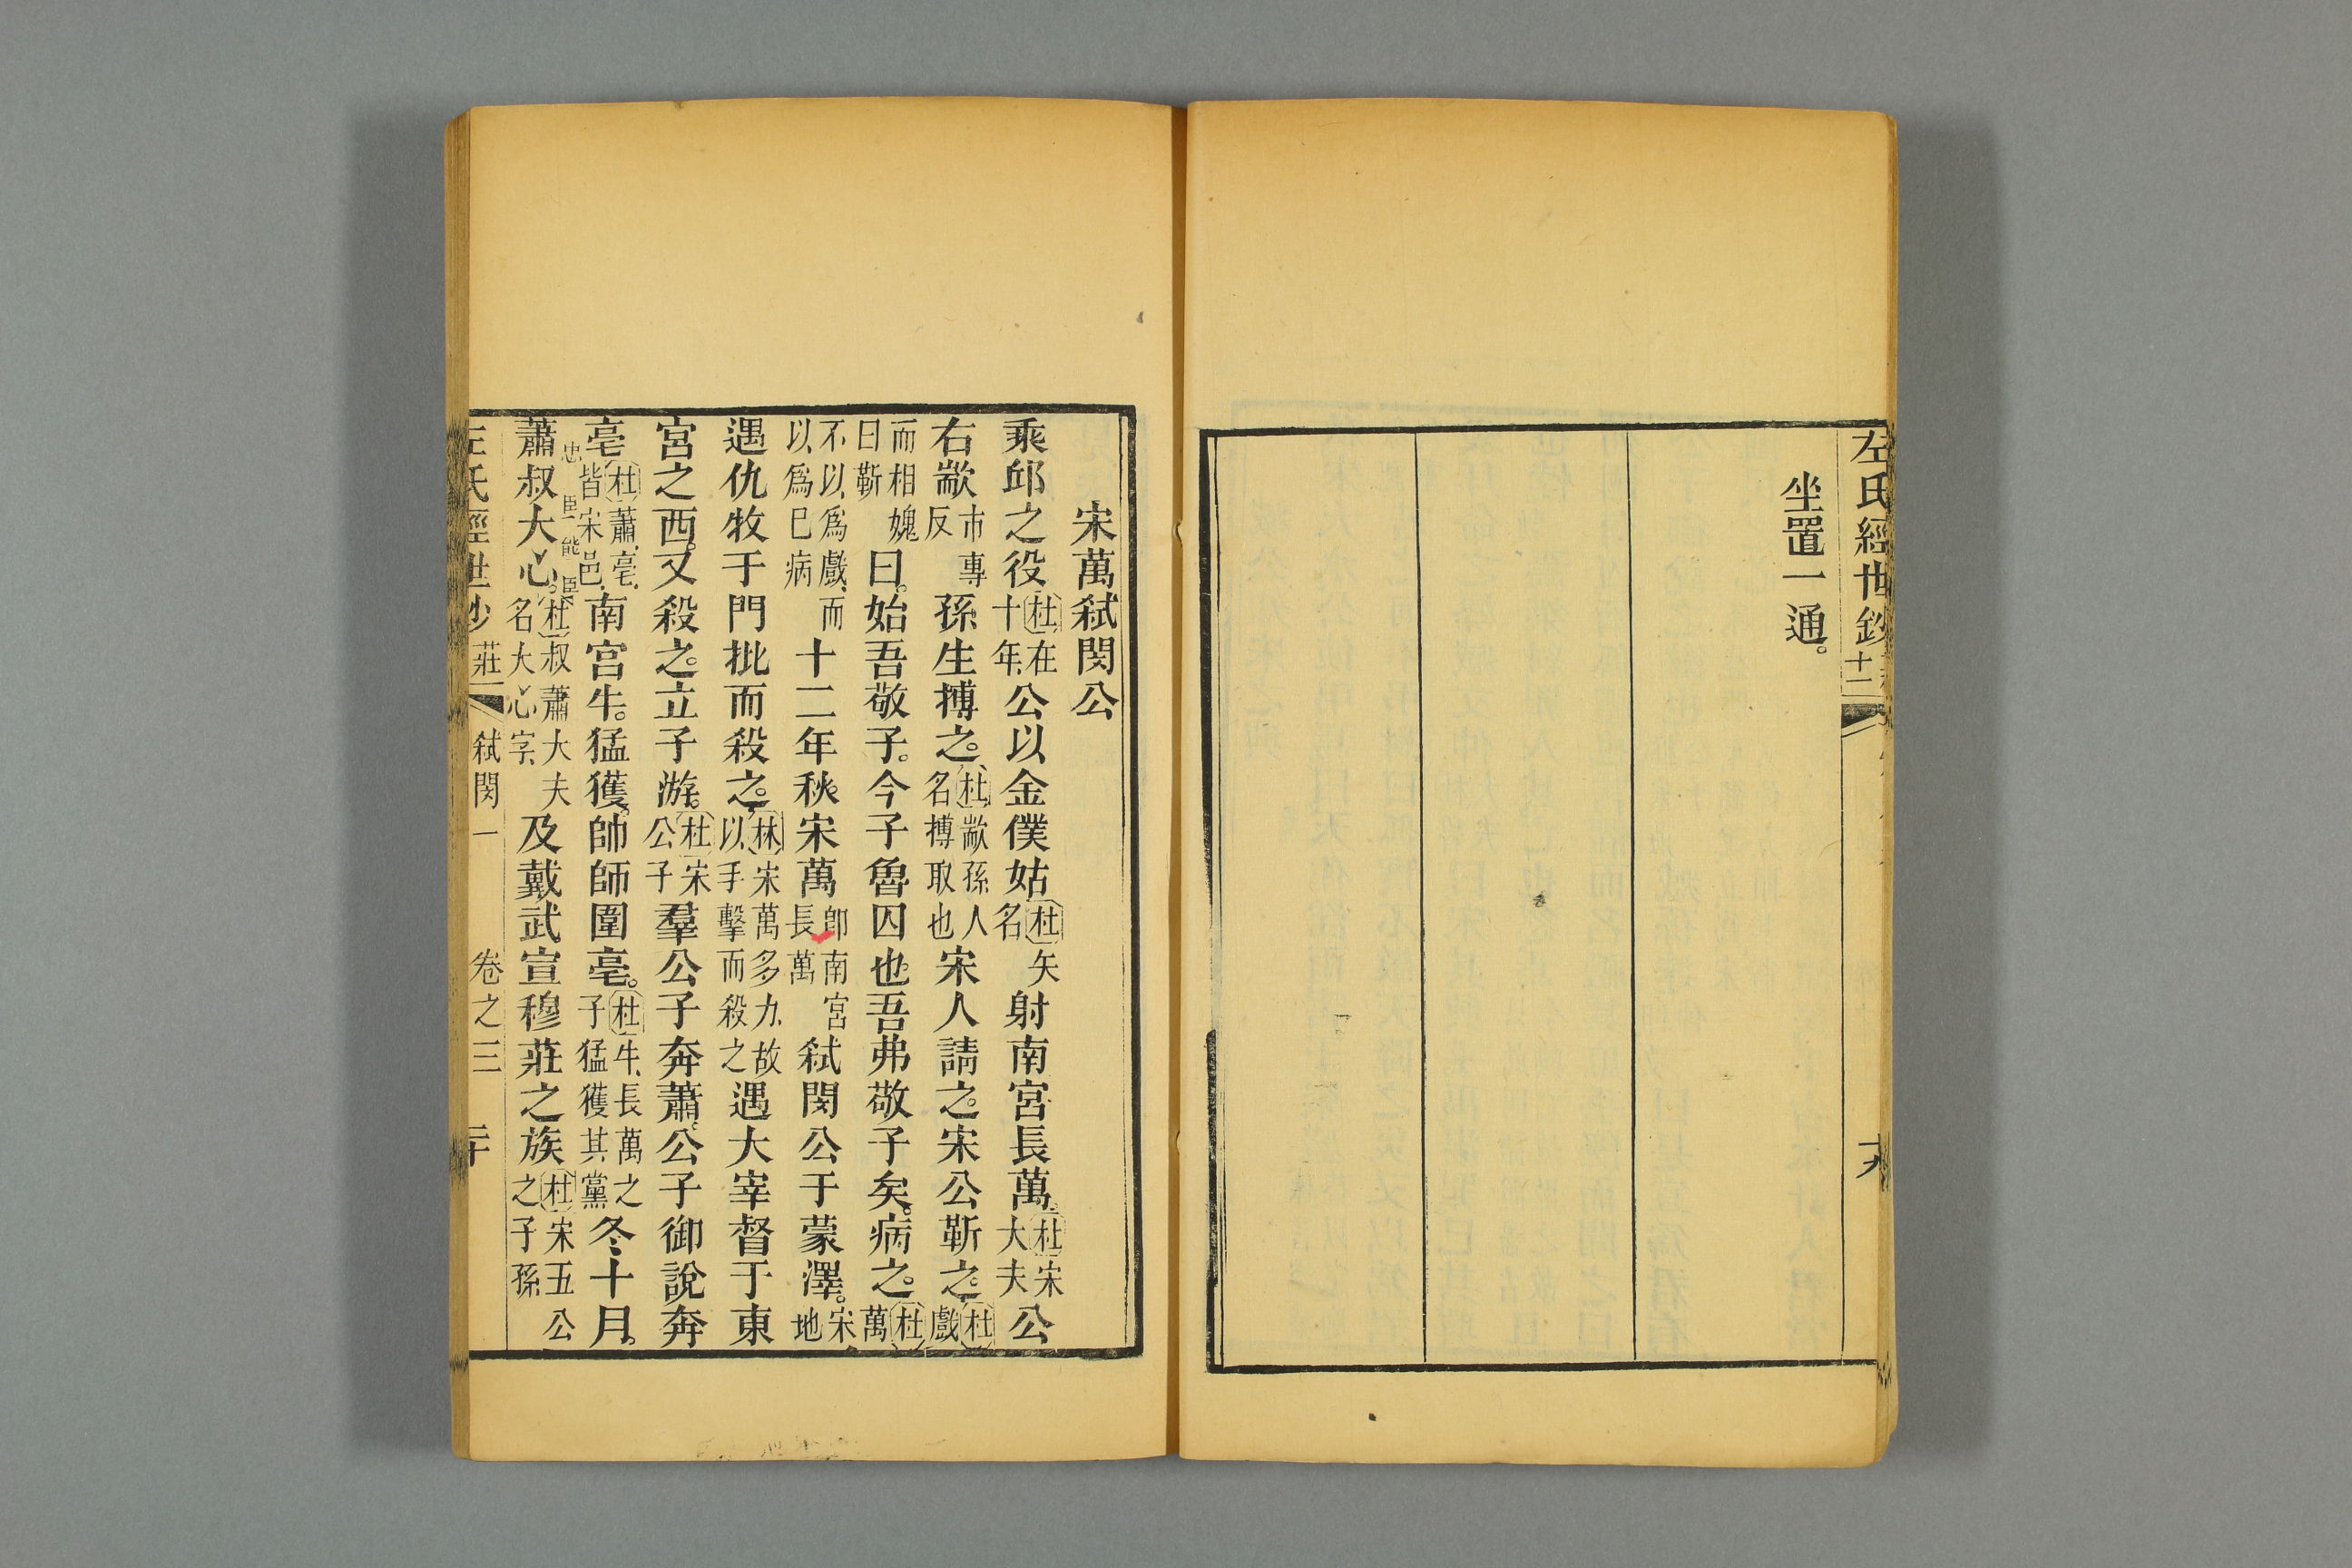 左氏經世鈔
十二
坐置一通。
宋萬弑閔公
乘邱之役、杜在十年、公以金僕姑杜矢名射南宮長萬。杜宋大夫公
右歂市專反孫生搏之。杜歂孫人名搏取也宋人請之。宋公靳之。杜戲
而相媿曰靳曰。始吾敬子。今子魯囚也。吾弗敬子矣。病之。杜萬
不以爲戲、而以爲已病十二年秋。宋萬卽南宮長萬弑閔公于蒙澤。宋地
遇仇牧于門批而殺之。林宋萬多力、故以手擊而殺之遇大宰督于東
宮之西。又殺之。立子游。杜宋公子羣公子奔蕭。公子御說奔
亳杜蕭、亳、皆宋邑。南宮牛。猛獲。帥師圍亳。杜牛、長萬之子猛獲其黨冬十月。
忠臣能臣
蕭叔大心。杜叔蕭大夫名大心字、及戴武宣穆莊之族杜宋五公之子孫
左氏經世鈔 莊一 弑閔一 卷之三 二十